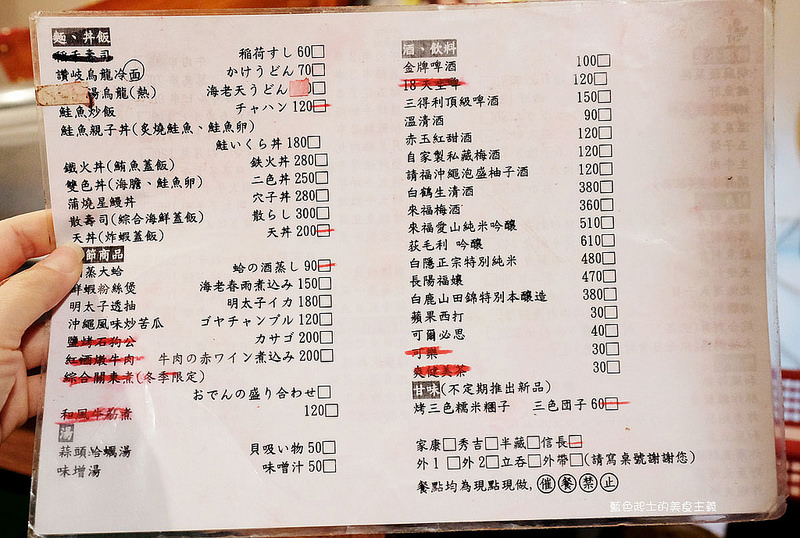 麵、丼飯
稻禾壽司 稲荷すし 60□
讚岐烏龍冷面 かけうどん 70□
湯烏龍(熱) 海老天うどん 0□
鮭魚炒飯 チャハン 120□
鮭魚親子丼(炙燒鮭魚、鮭魚卵)
鮭いくら丼 180□
鐵火丼(鮪魚蓋飯) 鉄火丼 280□
雙色丼(海膽、鮭魚卵) 二色丼 250□
蒲燒星鰻丼 穴子丼 280□
散壽司(綜合海鮮蓋飯) 散らし 300□
天丼(炸蝦蓋飯) 天丼 200□
節商品
蒸大蛤 蛤の酒蒸し 90□
鮮蝦粉絲煲 海老春雨煮込み 150□
明太子透抽 明太子イカ 180□
沖繩風味炒苦瓜 ゴヤチャンプル 120□
鹽烤石狗公 カサゴ 200□
紅酒燉牛肉 牛肉の赤ワイン煮込み 200□
綜合關東煮(冬季限定)
おでんの盛り合わせ□
和風牛筋煮 120□
湯
蒜頭蛤蠣湯 貝吸い物 50□
味增湯 味噌汁 50□
酒、飲料
金牌啤酒 100□
18天生啤 120□
三得利頂級啤酒 150□
溫清酒 90□
赤玉紅甜酒 120□
自家製私藏梅酒 120□
請福沖繩泡盛柚子酒 120□
白鶴生清酒 380□
來福梅酒 360□
來福愛山純米吟釀 510□
荻毛利 吟釀 610□
白隱正宗特別純米 480□
長陽福孃 470□
白鹿山田錦特別本釀造 380□
蘋果西打 30□
可爾必思 40□
可樂 30□
爽健美茶 30□
甘味(不定期推出新品)
烤三色糯米糰子 三色団子 60□
家康□秀吉□半藏□信長□
外1 □外2□立吞□外帶□(請寫桌號謝謝您)
餐點均為現點現做,催餐禁止
藍色起士的美食主義